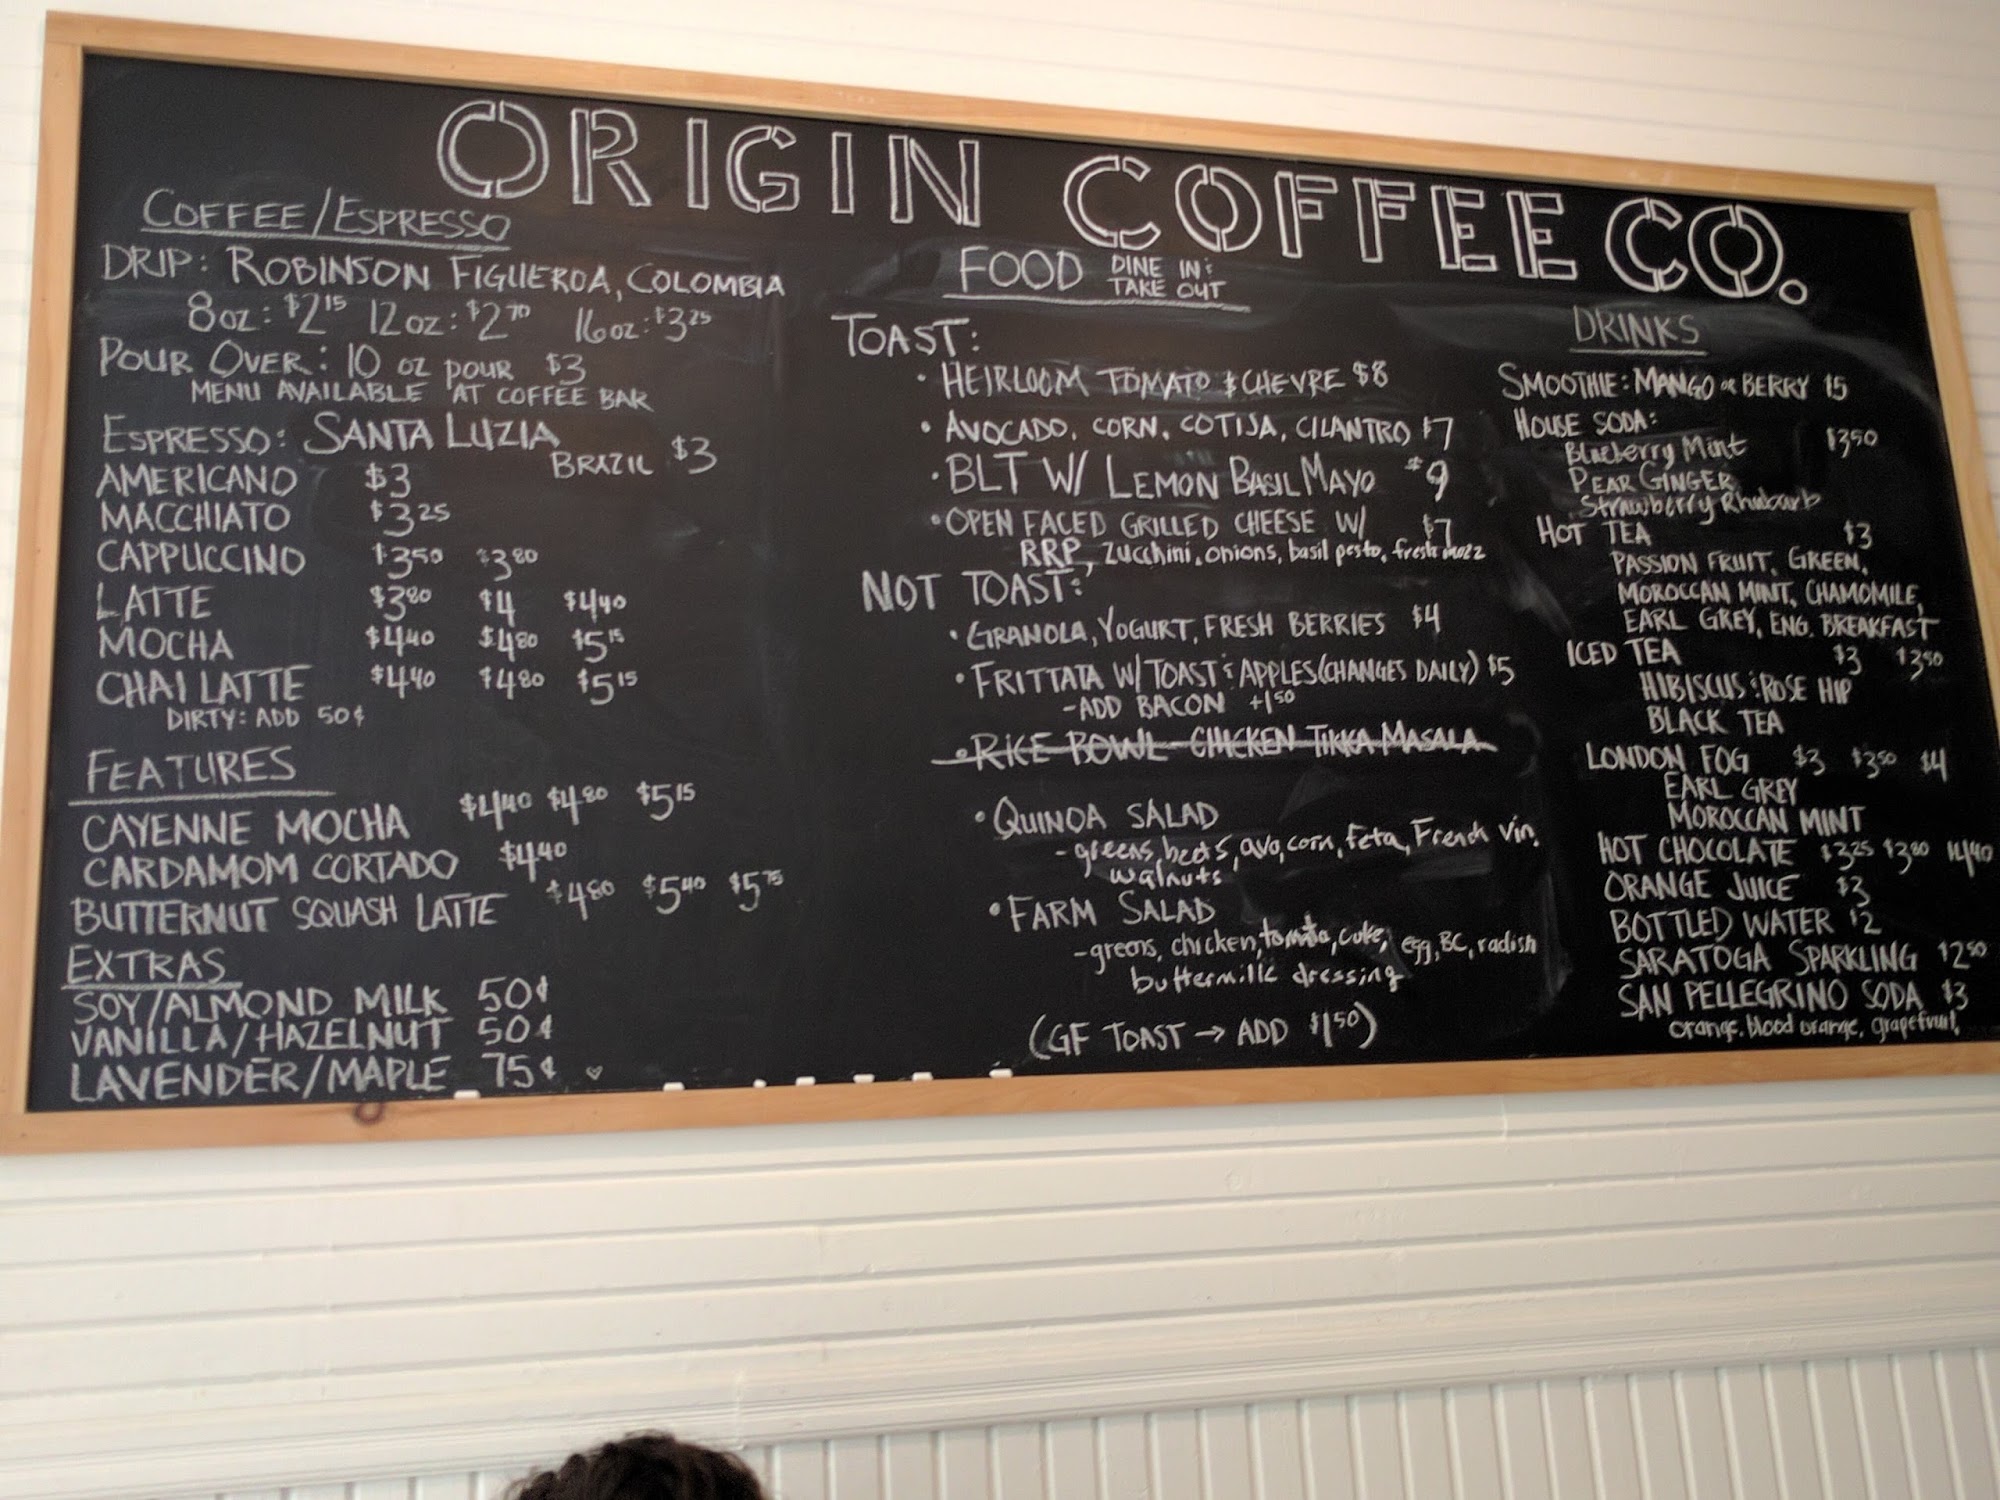 ORIGIN COFFEE CO.
COFFEE/ESPRESSO
DRIP: ROBINSON FIGUEROA, COLOMBIA
8oz: $2.15 12oz: $2.70 16oz: $3.25
POUR OVER: 10 oz POUR $3
MENU AVAILABLE AT COFFEE BAR
ESPRESSO: SANTA LUZIA
BRAZIL $3
AMERICANO $3
MACCHIATO $3.25
CAPPUCCINO $3.50 $3.80
LATTE $3.80 $4 $4.40
MOCHA $4.40 $4.80 $5.15
CHAI LATTE $4.40 $4.80 $5.15
DIRTY: ADD 50¢
FEATURES
CAYENNE MOCHA $4.40 $4.80 $5.15
CARDAMOM CORTADO $4.40
BUTTERNUT SQUASH LATTE $4.80 $5.40 $5.75
EXTRAS
SOY/ALMOND MILK 50¢
VANILLA/HAZELNUT 50¢
LAVENDER/MAPLE 75¢ ♡
FOOD DINE IN &
TAKE OUT
TOAST:
• HEIRLOOM TOMATO & CHEVRE $8
• AVOCADO, CORN, COTIJA, CILANTRO $7
• BLT W/ LEMON BASIL MAYO $9
• OPEN FACED GRILLED CHEESE W/ $7
RRP, zucchini, onions, basil pesto, fresh mozz
NOT TOAST:
• GRANOLA, YOGURT, FRESH BERRIES $4
• FRITTATA W/ TOAST & APPLES (CHANGES DAILY) $5
-ADD BACON +1.50
• RICE BOWL - CHICKEN TIKKA MASALA
• QUINOA SALAD
- greens, beets, avo, corn, feta, French vin,
walnuts
• FARM SALAD
-greens, chicken, tomato, cuke, egg, BC, radish
buttermilk dressing
(GF TOAST → ADD $1.50)
DRINKS
SMOOTHIE: MANGO OR BERRY $5
HOUSE SODA:
Blueberry Mint $3.50
PEAR GINGER
Strawberry Rhubarb
HOT TEA $3
PASSION FRUIT, GREEN,
MOROCCAN MINT, CHAMOMILE,
EARL GREY, ENG. BREAKFAST
ICED TEA $3 $3.50
HIBISCUS & ROSE HIP
BLACK TEA
LONDON FOG $3 $3.50 $4
EARL GREY
MOROCCAN MINT
HOT CHOCOLATE $3.25 $3.80 $4.40
ORANGE JUICE $3
BOTTLED WATER $2
SARATOGA SPARKLING $2.50
SAN PELLEGRINO SODA $3
orange, blood orange, grapefruit